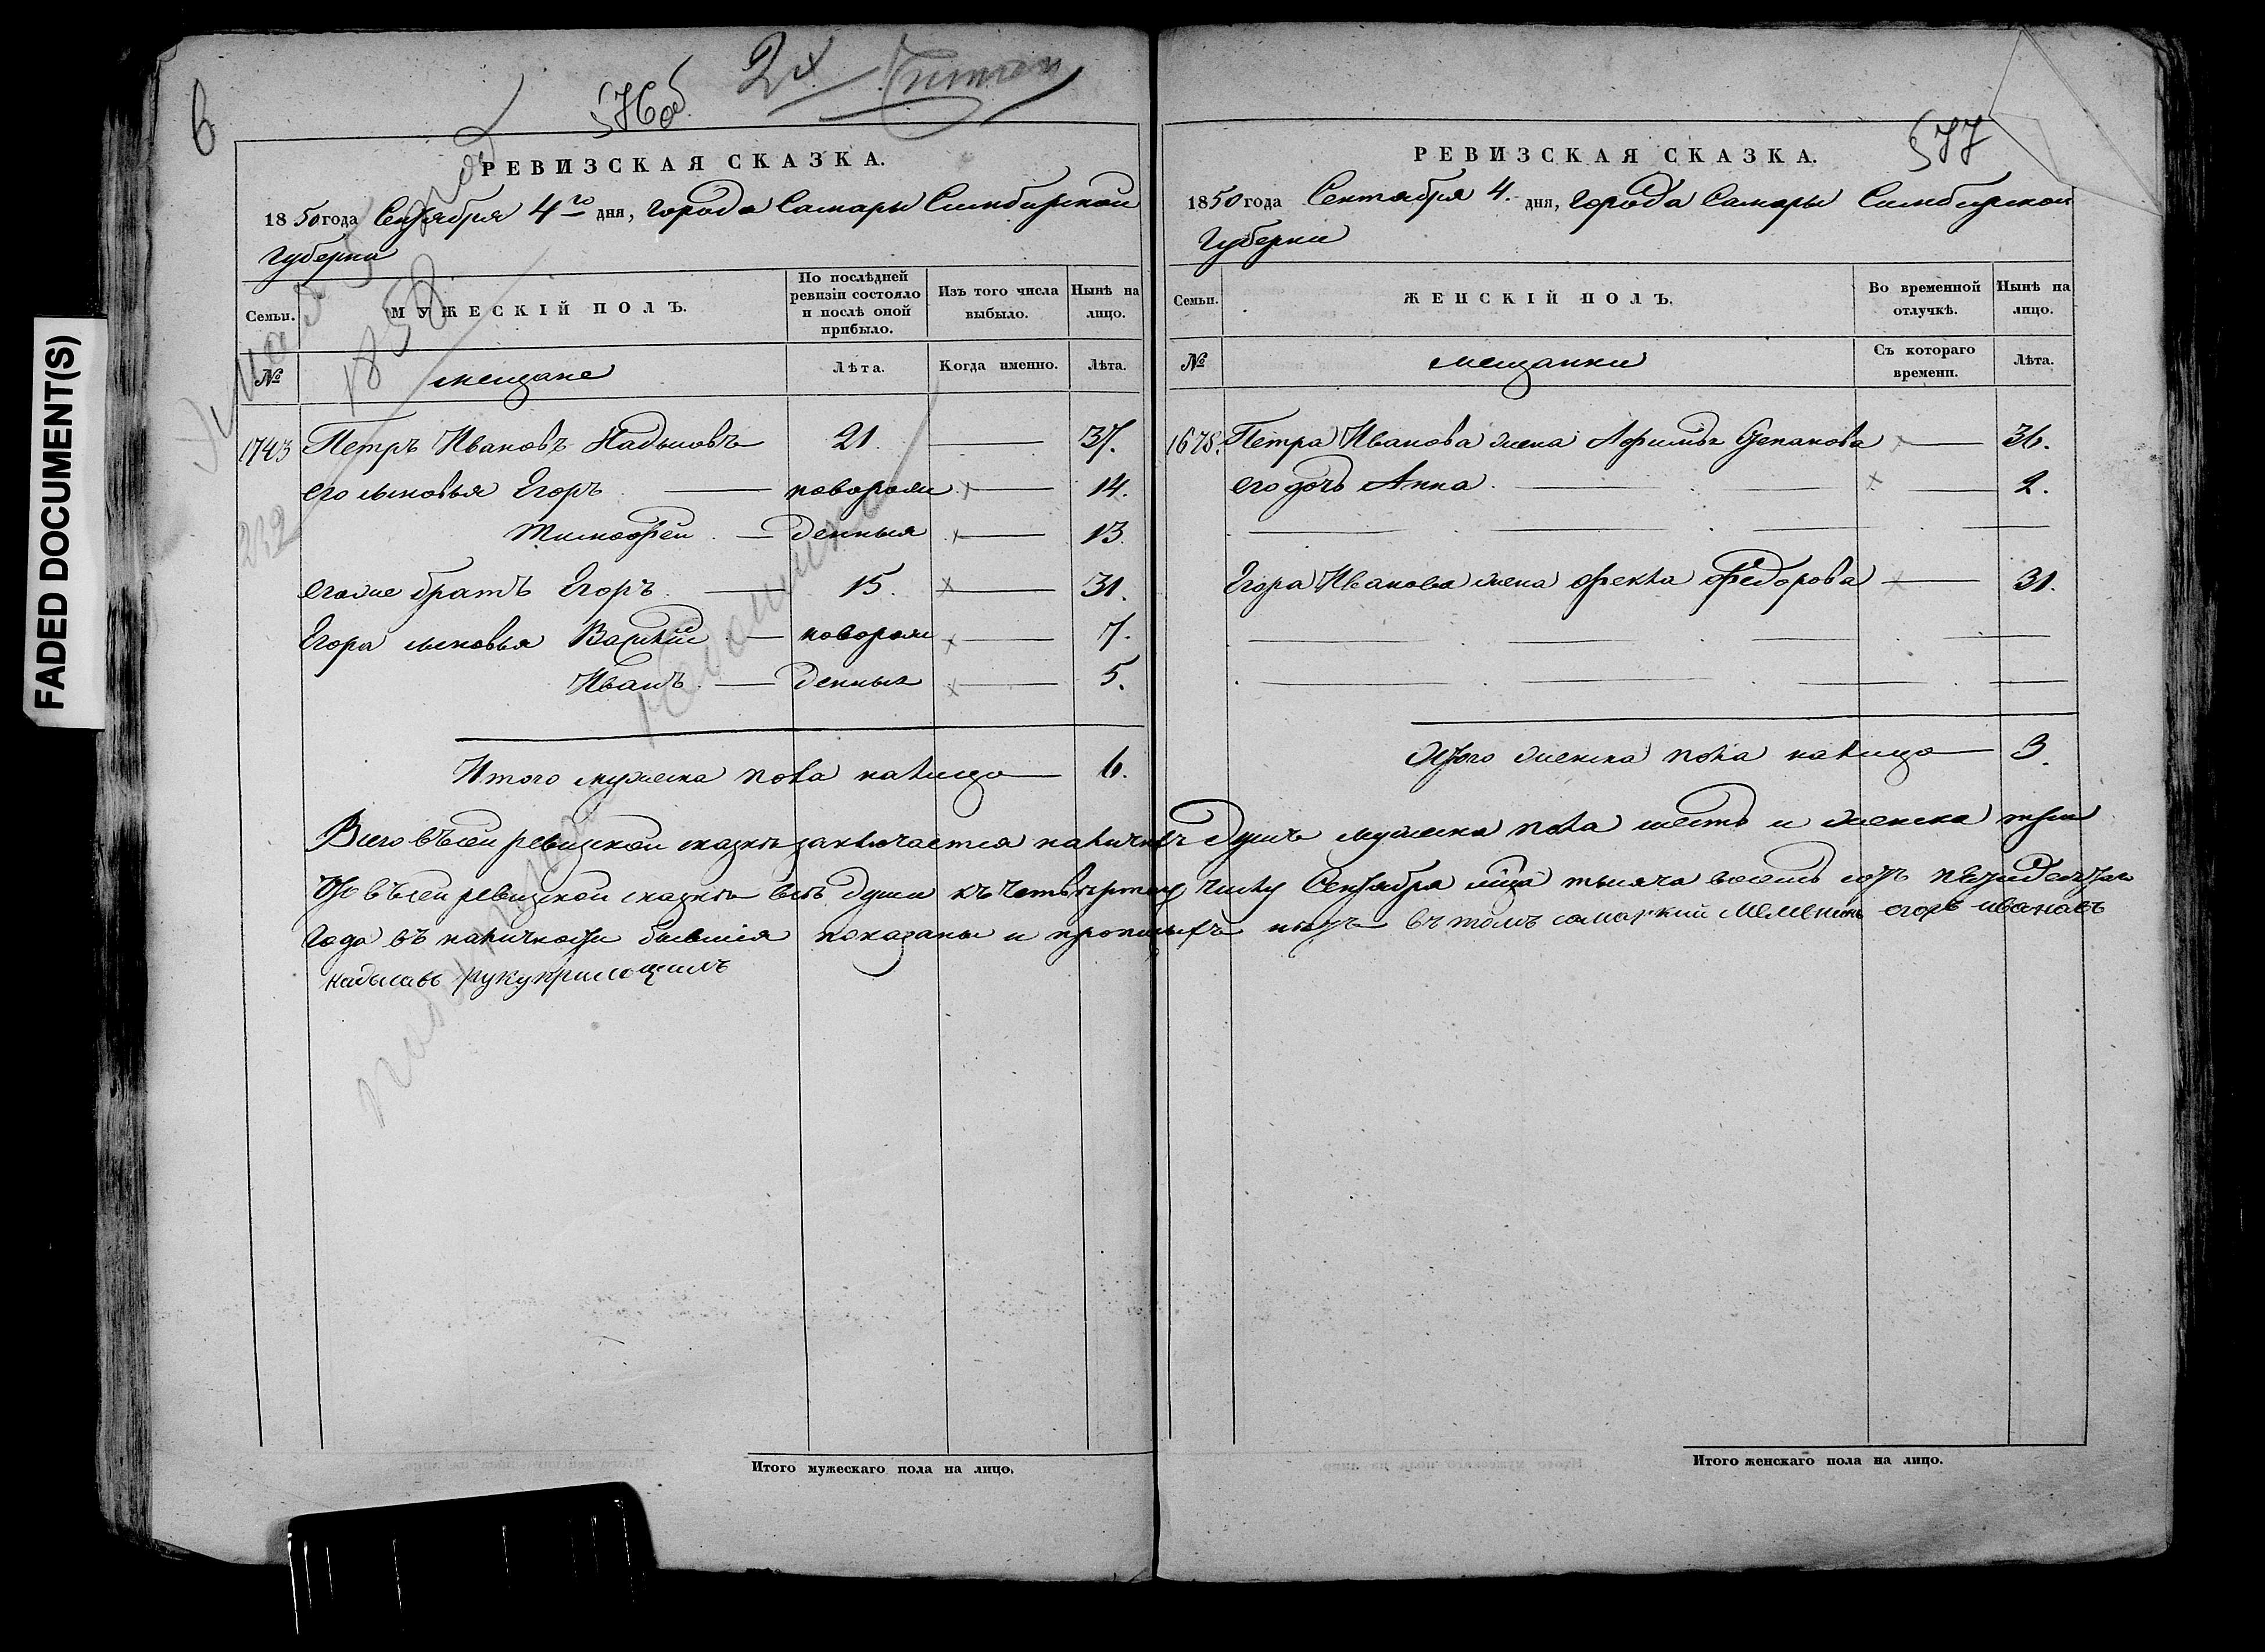 FADED DOCUMENT(S)
6
576об
РЕВИЗСКАЯ СКАЗКА.
1850 года Сентября 4го дня, города Самары Симбирской
Губерни
Семьи.
МУЖЕСКІЙ ПОЛЪ.
По послѣдней ревизіи состояло и послѣ оной прибыло.
Изъ того числа выбыло.
Нынѣ на лицо.
№
мещане
Лѣта.
Когда именно.
Лѣта.
1743 Петръ Ивановъ Надысовъ 21 37.
его сыновья Егоръ новорож 14.
Тимофѣй денныя 13.
232
его же братъ Егоръ 15. 31.
Егора сыновья Василій новорож 7.
Иванъ денныя 5.
Итого мужеска пола налицо 6.
577
РЕВИЗСКАЯ СКАЗКА.
1850 года Сентября 4. дня, Города Самары Симбирской
Губерни
Семьи.
ЖЕНСКІЙ ПОЛЪ.
Во временной отлучкѣ.
Нынѣ на лицо.
№
мещанки
Съ котораго времени.
Лѣта.
1678. Петра Иванова жена Афимья Степанова 36.
его дочь Анна 2.
Егора Иванова жена Фекла Федорова 31.
Итого женска пола налицо 3.
Всего въ сей ревизской сказкѣ заключается наличныхъ душъ мужеска пола шесть и женска три
Что въ сей ревизской сказкѣ всѣ души къ четвертому числу Сентября мца тысяча восемь сотъ пятидесятаго
Года въ наличности бывшія показаны и прописныхъ нѣтъ въ томъ самарский егоръ ивановъ
надысавъ рукуприложилъ
Итого мужескаго пола на лицо.
Итого женскаго пола на лицо.